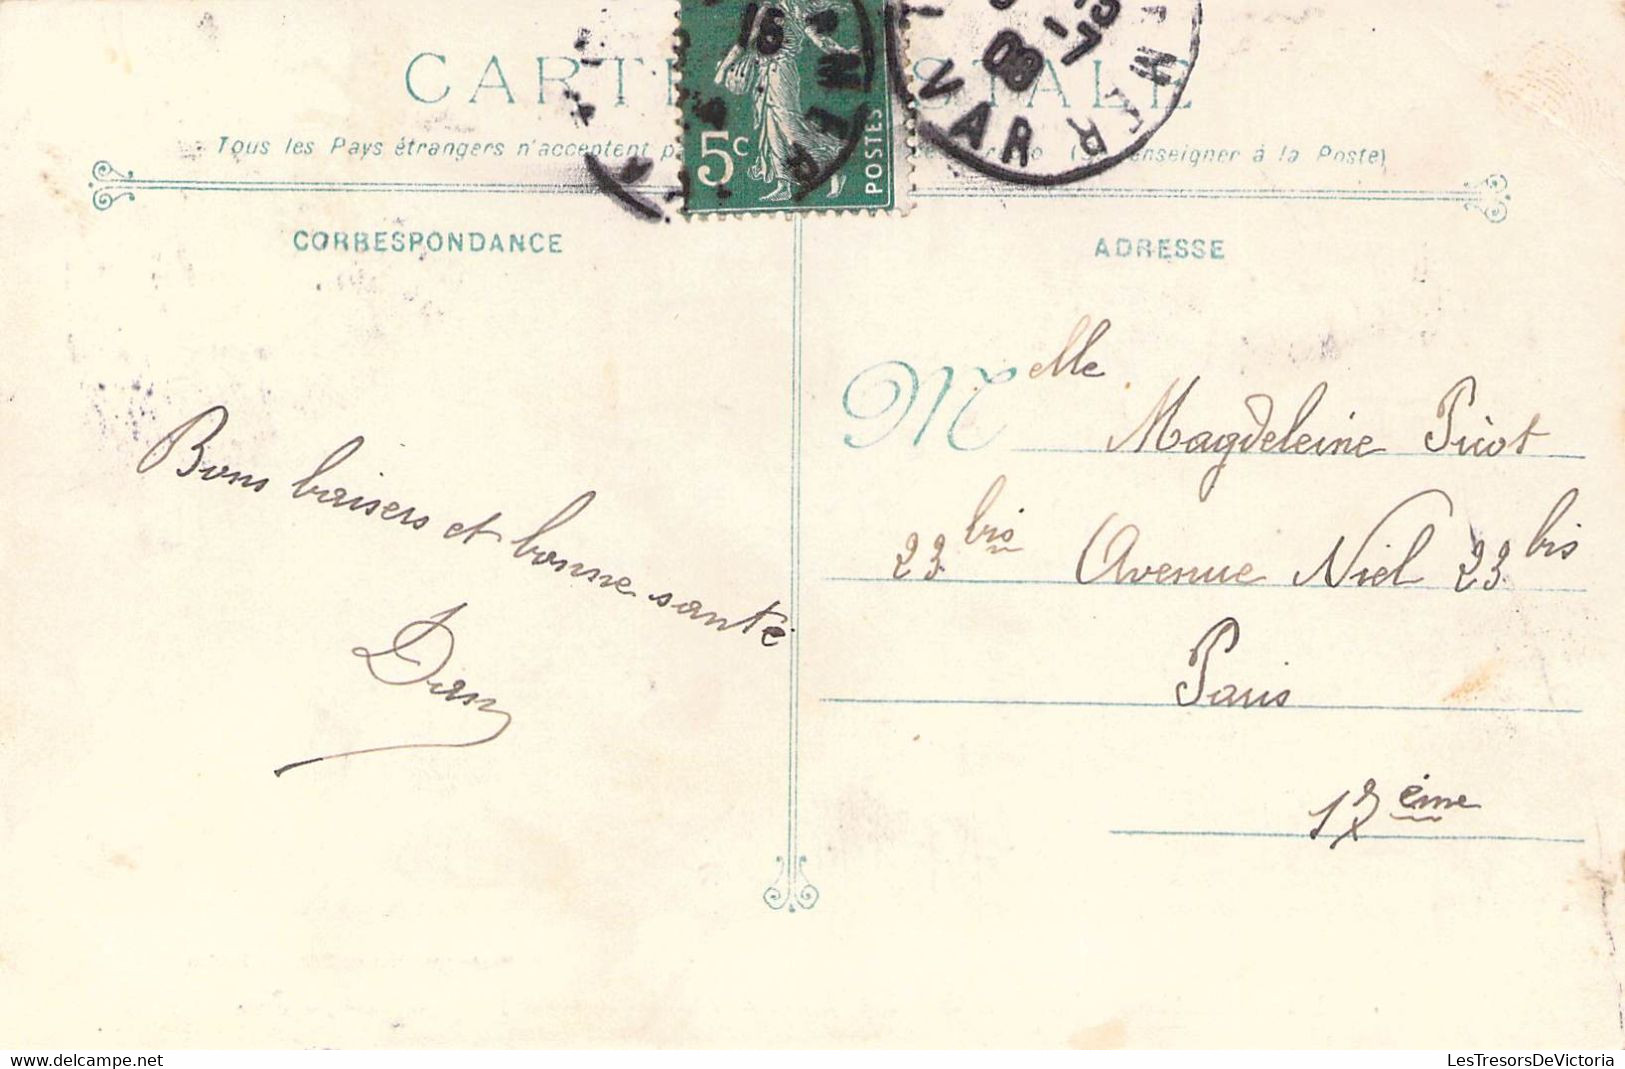 CARTE POSTALE
Tous les Pays étrangers n'acceptent (Se renseigner à la Poste)
5c
POSTES
16
08
7
VAR
MER
CORRESPONDANCE
ADRESSE
Bons baisers et bonne santé
Melle
Magdeleine Picot
23 bis Avenue Niel 23 bis
Paris
17 ème
LesTresorsDeVictoria